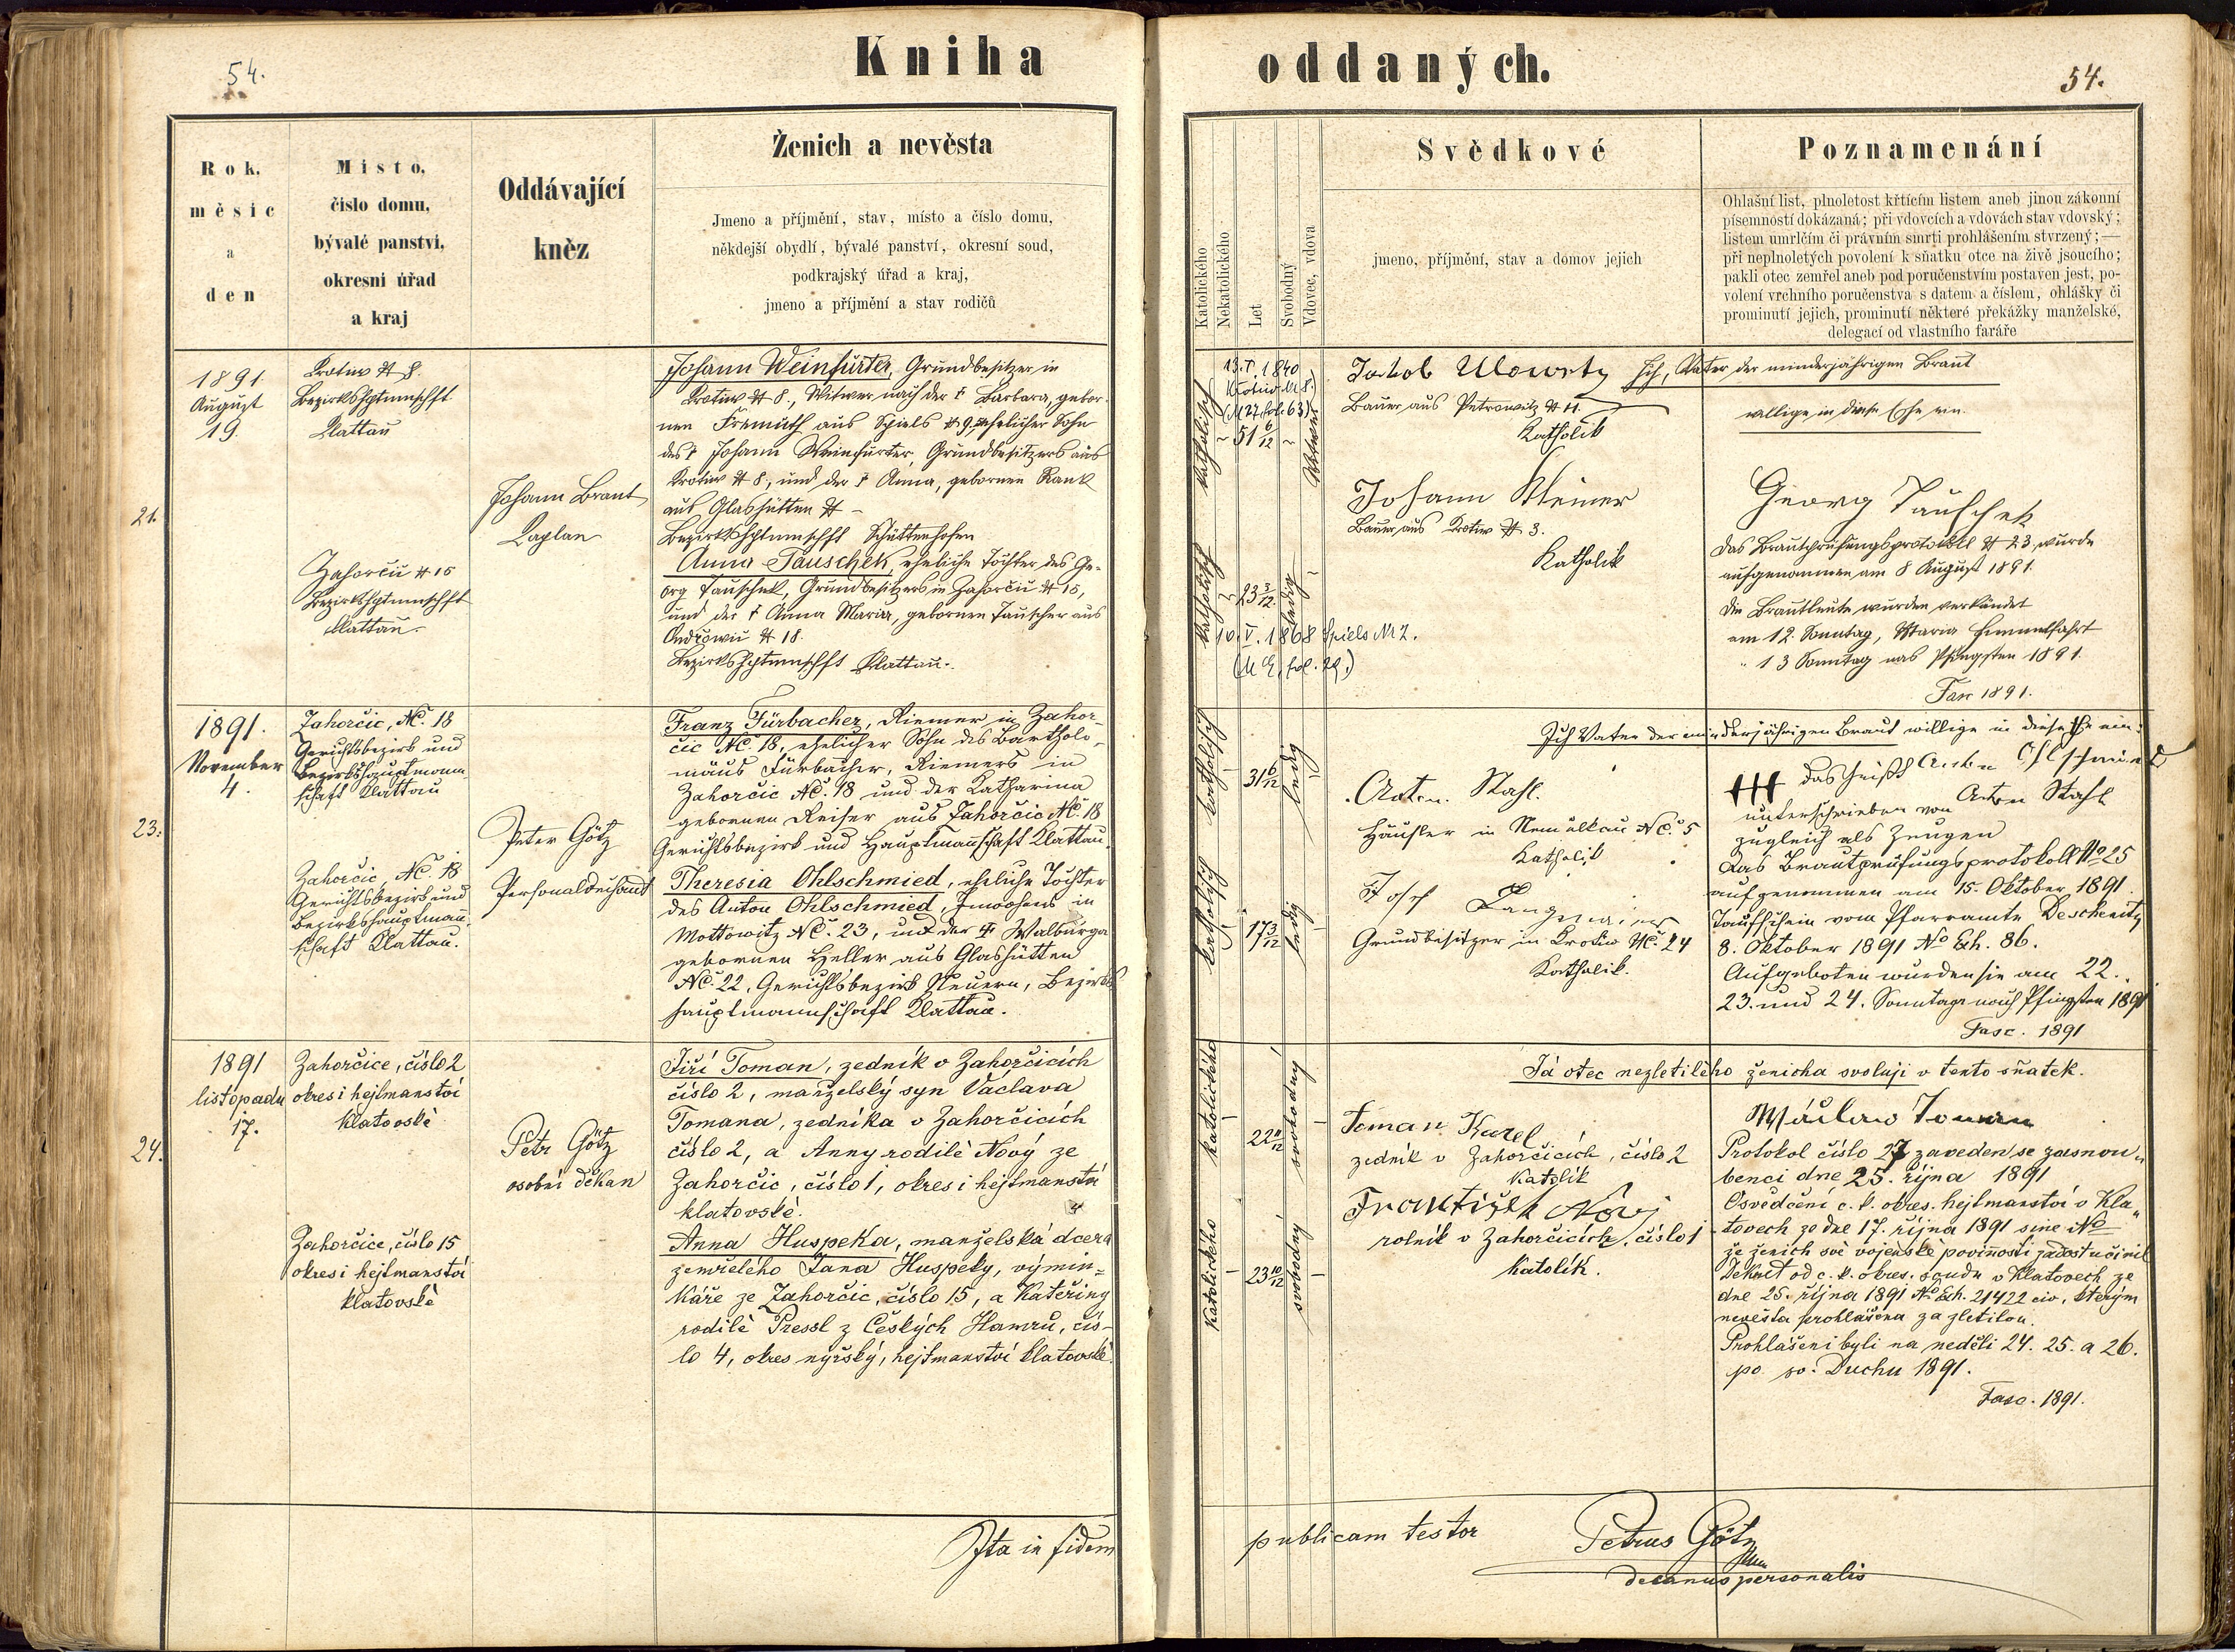 54.
Kniha oddaných.
54.
Rok,
měsíc
a
den
Místo,
číslo domu,
bývalé panství,
okresní úřad
a kraj
Oddávající
kněz
Ženich a nevěsta
Jmeno a příjmění, stav, místo a číslo domu,
někdejší obydlí, bývalé panství, okresní soud,
podkrajský úřad a kraj,
jmeno a příjmění a stav rodičů
Katolického
Nekatolického
Let
Svobodný
Vdovec, vdova
Svědkové
jmeno, příjmění, stav a domov jejich
Poznamenání
Ohlašní list, plnoletost křtícím listem aneb jinou zákonní
písemností dokázaná; při vdovcích a vdovách stav vdovský;
listem umrlčím či právním smrti prohlášením stvrzený; —
při neplnoletých povolení k sňatku otce na živě jsoucího;
pakli otec zemřel aneb pod poručenstvím postaven jest, po-
volení vrchního poručenstva s datem a číslem, ohlášky či
prominutí jejich, prominutí některé překážky manželské,
delegací od vlastního faráře
21.
1891.
August
19.
Krotiw # 8.
Bezirkshptmschft
Klattau
Zahorčic # 15
Bezirkshptmschft
Klattau.
Johann Brant
Kaplan
Johann Weinfurter, Grundbesitzer in
Krotiw # 8., Witwer nach der † Barbara, gebor-
nen Fremuth aus Spiels # 9, ehelicher Sohn
des † Johann Weinfurter, Grundbesitzers aus
Krotiw # 8, und der † Anna, gebornen Rank
aus Glashütten # -
Bezirkshptmschft Schüttenhofen
Anna Tauschek, eheliche Tochter des Ge-
org Tauschek, Grundbesitzers in Zahorčic # 15,
und der † Anna Maria, gebornen Tauscher aus
# 18.
Bezirkshptmschft Klattau.
13. V. 1840
Krotiw Nr 8.
fol. 63)
katholisch
51 6/12
Witwer
katholisch
23 3/12
ledig
10. V. 1868 Spiels Nr 2.
fol. 29.)
Jakob
Bauer aus Petrowitz # 11.
Katholik
Johann Kleiner
Bauer aus Krotiw # 3.
Katholik
Ich, Vater der minderjährigen Braut
willige in diese Ehe ein.
Georg Tauschek
Das Brautprüfungsprotokoll # 23 wurde
aufgenommen am 8 August 1891.
Die Brautleute wurden verkündet
am 12. Sonntag, Maria Himmelfahrt
" 13 Sonntag nach Pfingsten 1891.
Fasc 1891.
23.
1891.
November
4.
Zahorčic, NC. 18
Gerichtsbezirk und
Bezirkshauptmann-
schaft Klattau
Zahorčic, NC. 18
Gerichtsbezirk und
Bezirkshauptman-
schaft Klattau.
Peter Götz
Personaldechant
Franz Fürbacher, Riemer in Zahor-
čic NC. 18, ehelicher Sohn des Bartholo-
mäus Fürbacher, Riemers in
Zahorčic NC. 18 und der Katharina
gebornen Reiser aus Zahorčic NC. 18
Gerichtsbezirk und Hauptmannschaft Klattau.
Theresia Ohlschmied, eheliche Tochter
des Anton Ohlschmied, Inwohners in
Mottowitz NC. 23, und der † Walburga
gebornen Heller aus Glashütten
NC. 22, Gerichtsbezirk Neuern, Bezirks
hauptmannschaft Klattau.
katholisch
31 6/12
ledig
katholisch
17 3/12
ledig
Anton Stahl.
Häusler in Nemilkau NC. 5
Katholik
Josef
Grundbesitzer in Krotiw NC. 24
Katholik.
Ich Vater der minderjährigen Braut willige in diese Ehe ein:
††† das heißt Anton Ohlschmied
unterschrieben von Anton Stahl
zugleich als Zeugen
Das Brautprüfungsprotokoll No 25
aufgenommen am 15. Oktober 1891.
Taufschein vom Pfarramte Deschenitz
8. Oktober 1891 No Exh. 86.
Aufgeboten wurden sie am 22.
23. und 24. Sonntage nach Pfingsten 1891
Fasc. 1891
24.
1891
listopadu
17.
Zahorčice, číslo 2
okres i hejtmanství
klatovské
Zahorčice, číslo 15
okres i hejtmanství
klatovské
Petr Götz
osobní děkan
Jiří Toman, zedník v Zahorčicích
číslo 2, manželský syn Václava
Tomana, zedníka v Zahorčicích
číslo 2, a Anny rodilé Nový ze
Zahorčic, číslo 1, okres i hejtmanství
klatovské.
Anna Huspeka, manželská dcera
zemřelého Jana Huspeky, výmin-
káře ze Zahorčic, číslo 15, a Kateřiny
rodilé Pressl z Českých Hamrů, čís-
lo 4, okres nýrský, hejtmanství klatovské.
katolického
svobodný
katolického
23 10/12
svobodný
Toman Karel
zedník v Zahorčicích, číslo 2
katolík
František Nový
rolník v Zahorčicích, číslo 1
katolík.
Já otec nezletilého ženicha svoluji v tento sňatek.
Wáclaw Toman
Protokol číslo 27 zaveden se zasnou-
benci dne 25. října 1891
Osvědčení c. k. okres. hejtmanství v Kla-
tovech ze dne 17. října 1891 sine No
že ženich své vojenské povinnosti zadostučinil
Dekret od c. k. okres. soudu v Klatovech ze
dne 25. října 1891 No Exh. 21422 civ, kterým
nevěsta prohlášena za zletilou.
Prohlášeni byli na neděli 24. 25. a 26.
po sv. Duchu 1891.
Fasc. 1891.
Ita in fidem publicam testor
Petrus Götz
decanus personalis